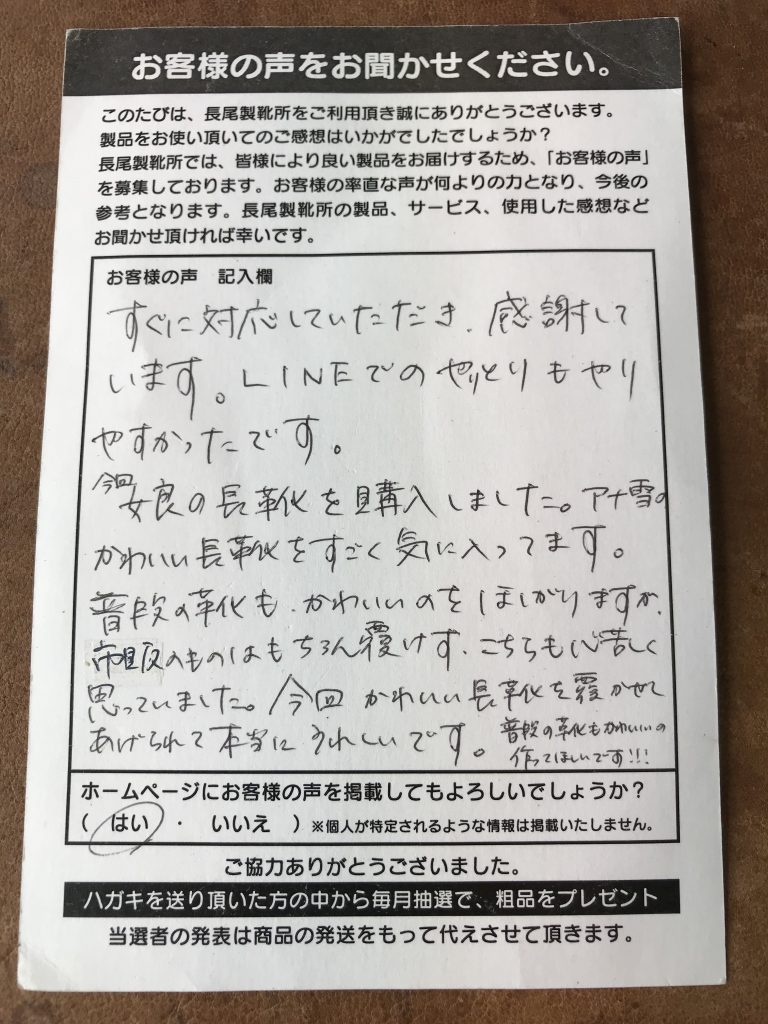 お客様の声をお聞かせください。
このたびは、長尾製靴所をご利用頂き誠にありがとうございます。
製品をお使い頂いてのご感想はいかがでしたでしょうか？
長尾製靴所では、皆様により良い製品をお届けするため、「お客様の声」
を募集しております。お客様の率直な声が何よりの力となり、今後の
参考となります。長尾製靴所の製品、サービス、使用した感想など
お聞かせ頂ければ幸いです。
お客様の声　記入欄
すぐに対応していただき、感謝して
います。LINEでのやりとりもやり
やすかったです。
今回娘の長靴を購入しました。アナ雪の
かわいい長靴をすごく気に入ってます。
普段の靴も、かわいいのをほしがりますが、
市販のものはもちろん履けず、こちらも心苦しく
思っていました。今回かわいい長靴を履かせて
あげられて本当にうれしいです。
普段の靴もかわいいの
作ってほしいです!!!
ホームページにお客様の声を掲載してもよろしいでしょうか？
（　はい　・　いいえ　）※個人が特定されるような情報は掲載いたしません。
ご協力ありがとうございました。
ハガキを送り頂いた方の中から毎月抽選で、粗品をプレゼント
当選者の発表は商品の発送をもって代えさせて頂きます。